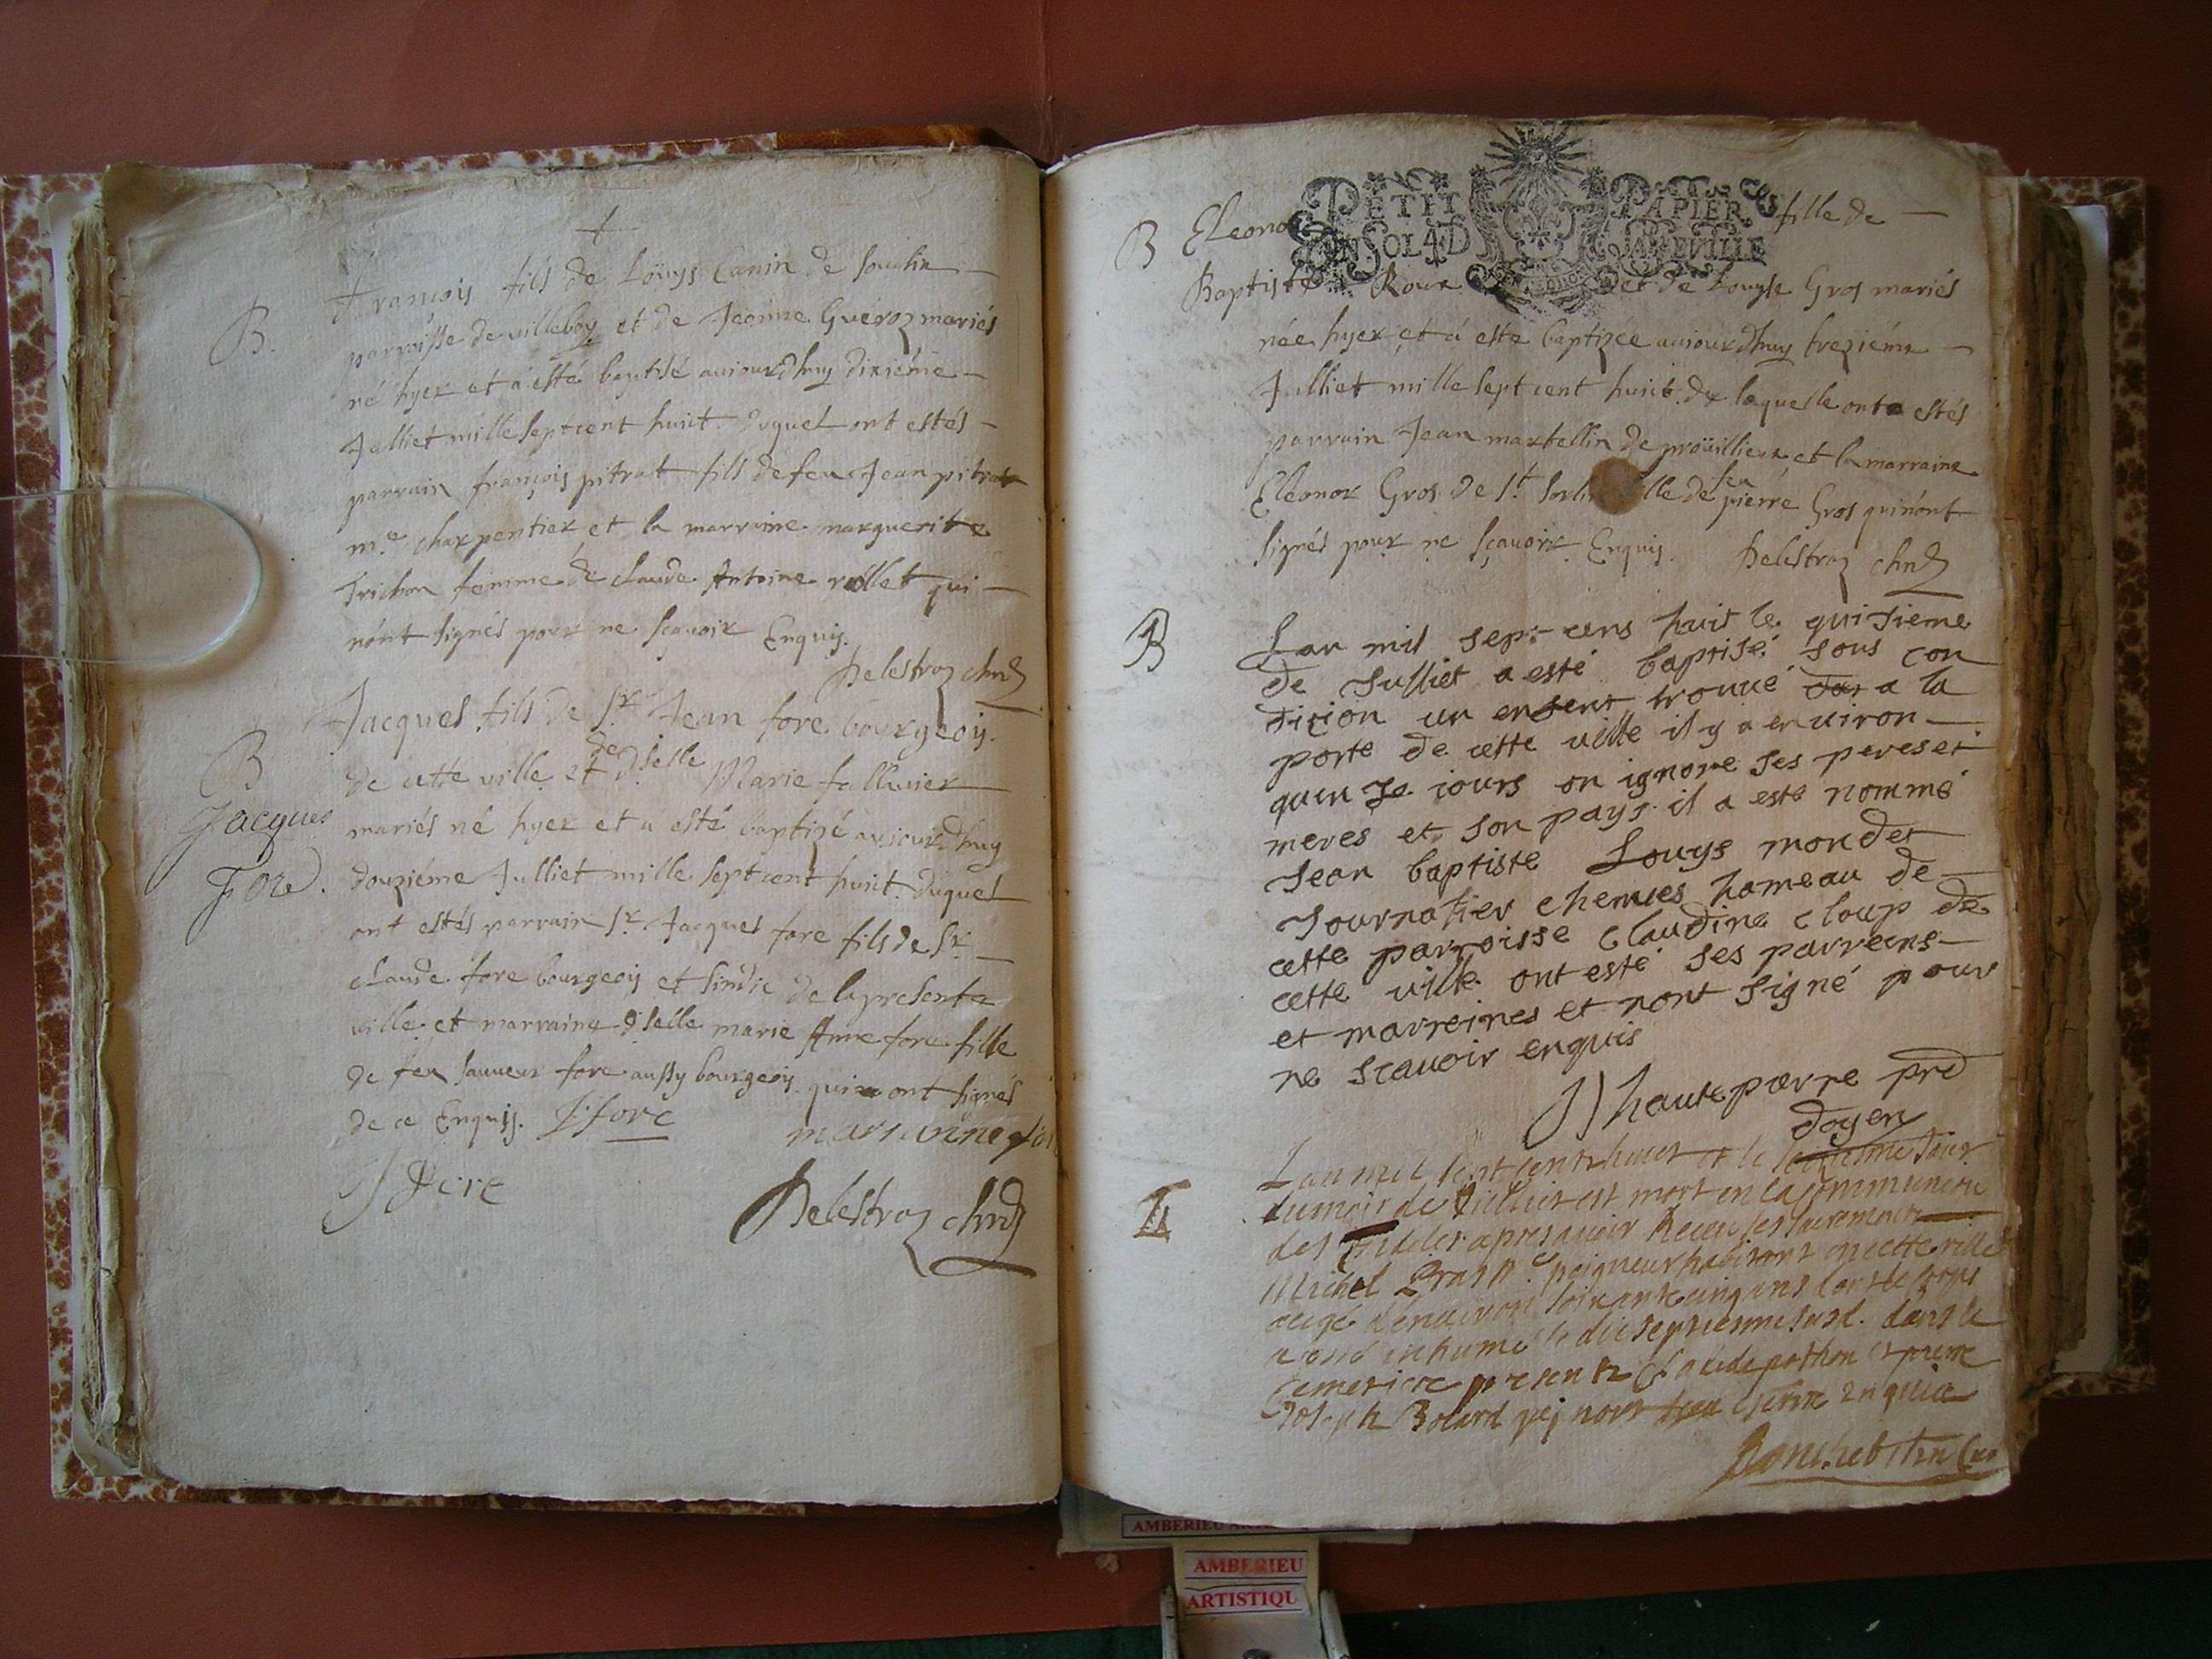 B. François fils de Loüys Canin de souclin
parroisse de villeboy et de Jeanne Guéroz mariés
né hyer et a esté baptisé aujourdhuy dixiéme
Julliet mille sept cent huict duquel ont estés
parrain françois pitrat fils de feu Jean pitrat
m.e charpentier et la marraine marguerite
Trichon femme de claude Antoine rollet qui
nónt signés pour ne sçavoir Enquis.
Delestraz
B Jacques fils de Sr. Jean fore bourgeois
Jacques Fore.
de cette ville et de dlselle Marie fallavier
mariés né hyer et a esté baptizé aujourdhuy
douziéme Julliet mille sept cent huict duquel
ont estés parrain Sr. Jacques fore fils de Sr.
claude fore bourgeois et sindic de la presente
ville et marraine dlselle marie Anne fore fille
de feu sauveur fore aussy bourgeois qui ont signés
de ce Enquis. J. fore
marianne
J fore
Delestraz
PETIT PAPIER
SOL 4 D LA FEUILLE
B Eleonor fille de
Baptiste Roux et de Louyse Gros mariés
née hyer et á esté baptizée aujourdhuy treziéme
Julliet mille sept cent huict de laquelle ont estés
parrain Jean martellin de proüillieux et la marraine
Eléonor Gros de St. Sorlin fille de feu pierre Gros qui nónt
signés pour ne sçavoir Enquis. Delestraz
B Lan mil sept cens huit le quisieme
de Julliet a esté baptisé sous con
dicion un enfent trouué a la
porte de cette ville il y a enuiron
quinze jours on ignore ses peres et
meres et son pays il a esté nommé
Jean baptiste Louys mondet
Journalier chemies hameau de
cette parroisse Claudine cloup de
cette ville ont esté ses parreins
et marreines et nont signé pour
ne scauoir enquis
haute pierre
doyen
Lan mil sept cent huict et le seisiesme Jour
du mois de Julliet est mort en la communion
des fideles apres auoir Receu les sacrements
Michel Bras peigneur habitant en cette ville
aegé denuiron soixante cinq ans le corps
a esté inhumé le dieseptiemme susd. dans le
cemetiere presents Claude pothon et pierre
Joseph Bolard nont enquis
AMBERIEU
AMBERIEU
ARTISTIQU